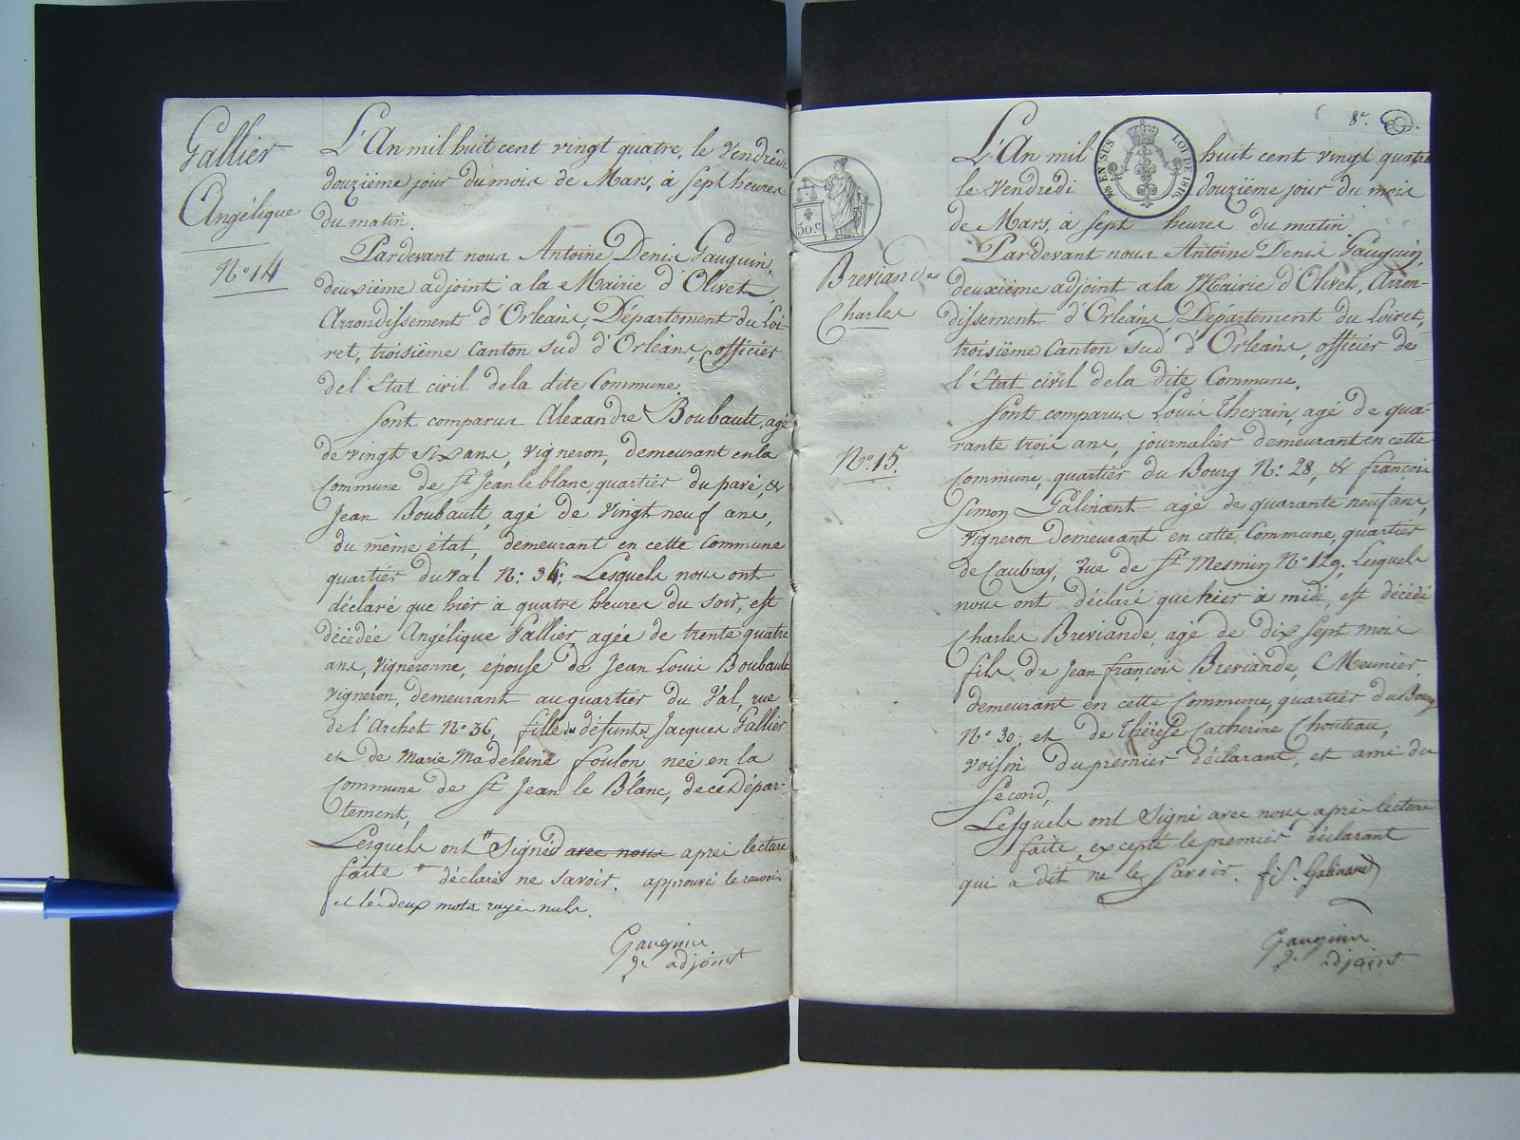 Gallier
Angélique
N° 14
L'An mil huit cent vingt quatre, le Vendredi
douzième jour du mois de Mars, à sept heures
du matin.
Pardevant nous Antoine Denis Gauguin,
deuxième adjoint a la Mairie d'Olivet,
Arrondissement d'Orléans, Département du Loi-
ret, troisième Canton sud d'Orléans, officier
de l'Etat civil de la dite Commune.
Sont comparus Alexandre Boubault, agé
de vingt six ans, vigneron, demeurant en la
Commune de St Jean le blanc, quartier du pavé, &
Jean Boubault, agé de vingt neuf ans,
du même état, demeurant en cette Commune
quartier du val N: 36; Lesquels nous ont
déclaré que hier à quatre heures du soir, est
décédée Angélique Gallier, agée de trente quatre
ans, Vigneronne, épouse de Jean Louis Boubault
vigneron, demeurant au quartier du Val, rue
de l'Archet N° 36, fille de défunts Jacques Gallier
et de Marie Madeleine foulon, née en la
Commune de St Jean le Blanc, de ce Dépar-
tement,
Lesquels ont Signé avec nous après lecture
faite déclaré ne savoir. approuvé le renvoi
et les deux mots rayés nuls.
Gauguin
2e adjoint
8e.
50 c
RECENSUS
LOI DE 1816
Breviandes
Charles
N° 15.
L'An mil huit cent vingt quatre
le Vendredi douzième jour du mois
de Mars, à sept heures du matin
Pardevant nous Antoine Denis Gauguin,
deuxième adjoint a la Mairie d'Olivet, Arron-
dissement d'Orléans, Département du Loiret,
troisième Canton sud d'Orléans, officier de
l'Etat civil de la dite Commune.
Sont comparus Louis Therain, agé de qua-
rante trois ans, journalier demeurant en cette
Commune, quartier du Bourg N: 28, & françois
Simon Galinant agé de quarante neuf ans,
vigneron demeurant en cette Commune, quartier
de Caubray, rue de St Mesmin N° 129. Lesquels
nous ont déclaré que hier à midi, est décédé
Charles Breviande, agé de dix sept mois
fils de Jean françois Breviande, Meunier,
demeurant en cette Commune, quartier du Bourg
N° 30, et de Thérèse Catherine Chouteau,
voisin du premier déclarant, et ami du
Second,
Lesquels ont signé avec nous après lecture
faite, excepté le premier déclarant
qui a dit ne le Savoir. f. S. Galinand
Gauguin
2e adjoint